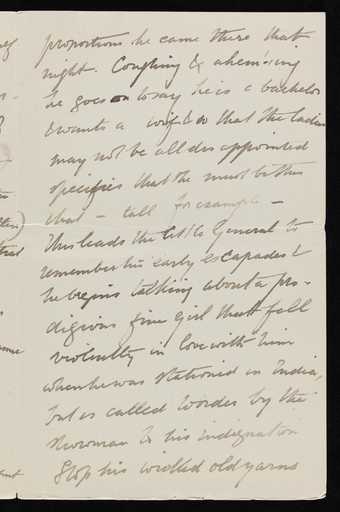 proportions he came there that
night. Coughing & ahem'sing
he goes on to say he is a bachelor
& wants a wife & so that the ladies
may not be all disappointed
specifies that she must be this
that – tall for example –
This leads the little General to
remember his early escapades &
he begins talking about a pro-
digious fine girl that fell
violently in love with him
when he was stationed in India,
but is called to order by the
Showman to his indignation
Stop his wicked old yarns